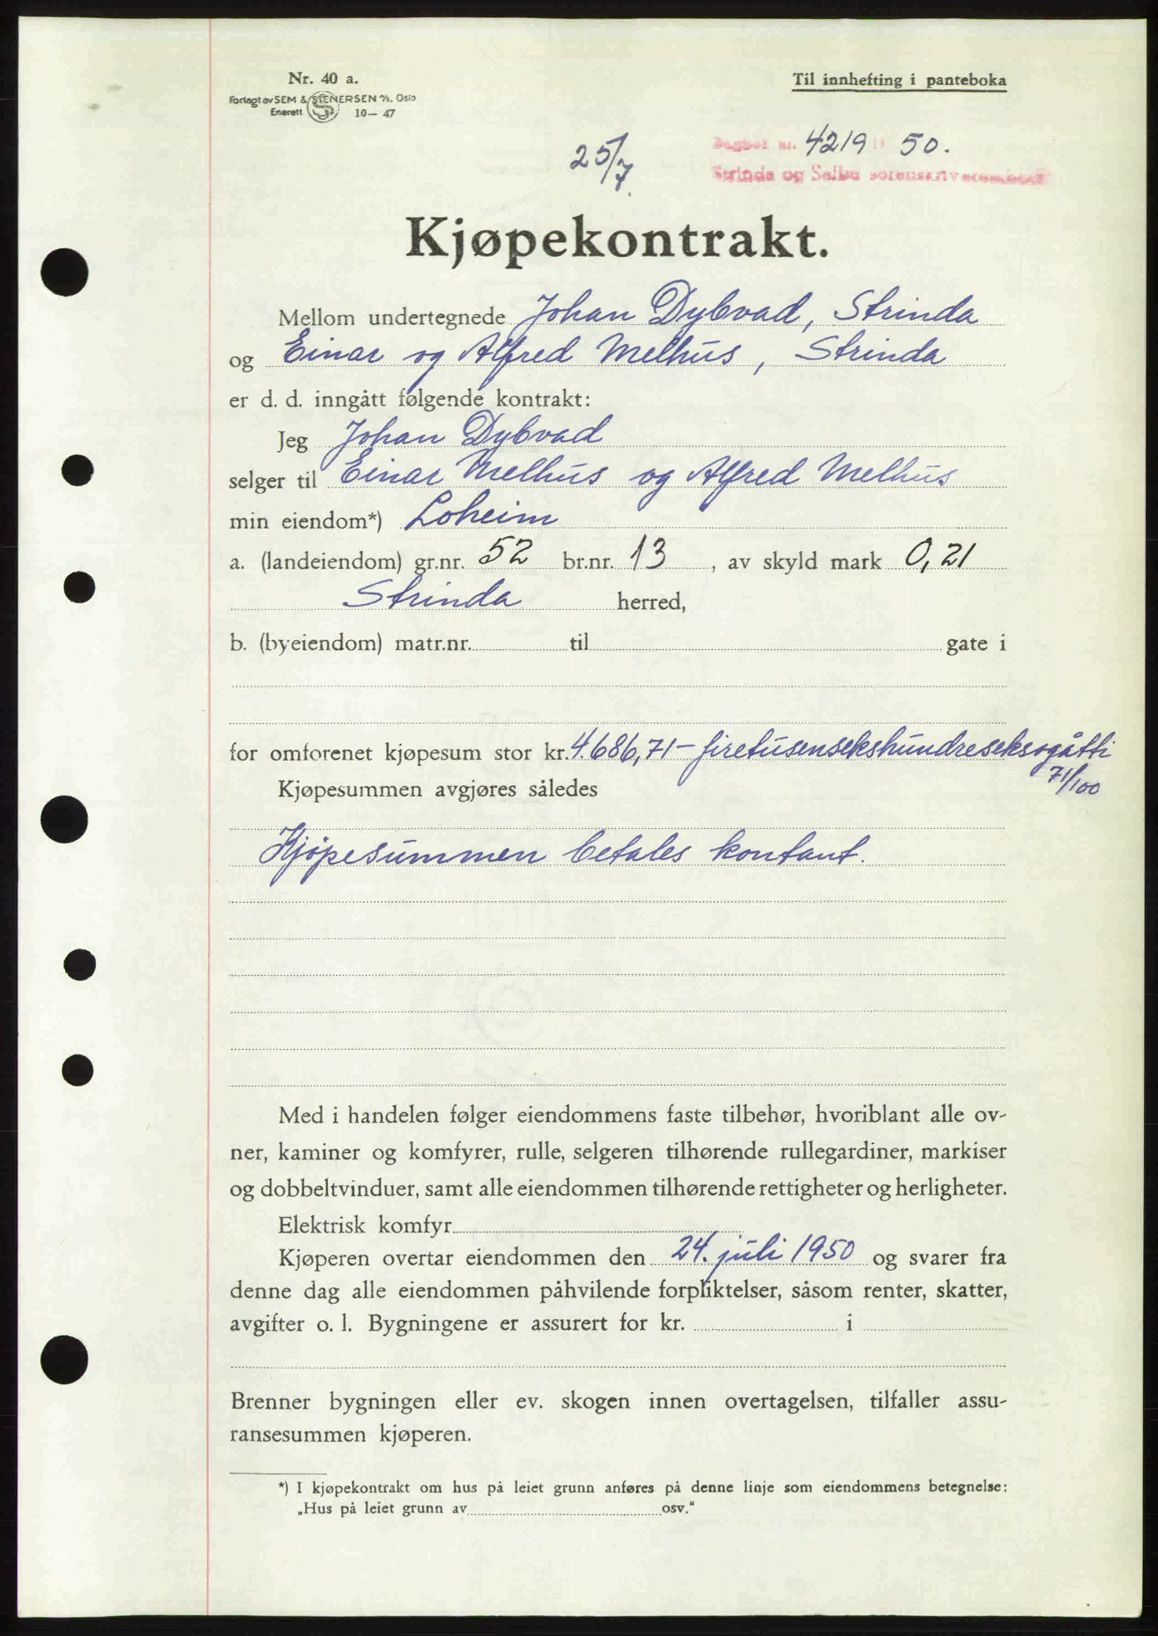 Nr. 40 a.
Til innhefting i panteboka
Forlagt av SEM & STENERSEN A/S, Oslo
Enerett 10-47
25/7. Dagbok nr. 4219 50.
Strinda og Selbu sorenskriverembete
Kjøpekontrakt.
Mellom undertegnede Johan Dybvad, Strinda
og Einar og Alfred Melhus, Strinda
er d. d. inngått følgende kontrakt:
Jeg Johan Dybvad
selger til Einar Melhus og Alfred Melhus
min eiendom*) Loheim
a. (landeiendom) gr.nr. 52 br.nr. 13, av skyld mark 0,21
Strinda herred,
b. (byeiendom) matr.nr. til gate i
for omforenet kjøpesum stor kr. 4.686,71 - firetusensekshundreseksogåtti
71/100
Kjøpesummen avgjøres således
Kjøpesummen betales kontant.
Med i handelen følger eiendommens faste tilbehør, hvoriblant alle ov-
ner, kaminer og komfyrer, rulle, selgeren tilhørende rullegardiner, markiser
og dobbeltvinduer, samt alle eiendommen tilhørende rettigheter og herligheter.
Elektrisk komfyr
Kjøperen overtar eiendommen den 24. juli 1950 og svarer fra
denne dag alle eiendommen påhvilende forpliktelser, såsom renter, skatter,
avgifter o. l. Bygningene er assurert for kr. i
Brenner bygningen eller ev. skogen innen overtagelsen, tilfaller assu-
ransesummen kjøperen.
*) I kjøpekontrakt om hus på leiet grunn anføres på denne linje som eiendommens betegnelse:
„Hus på leiet grunn av osv."